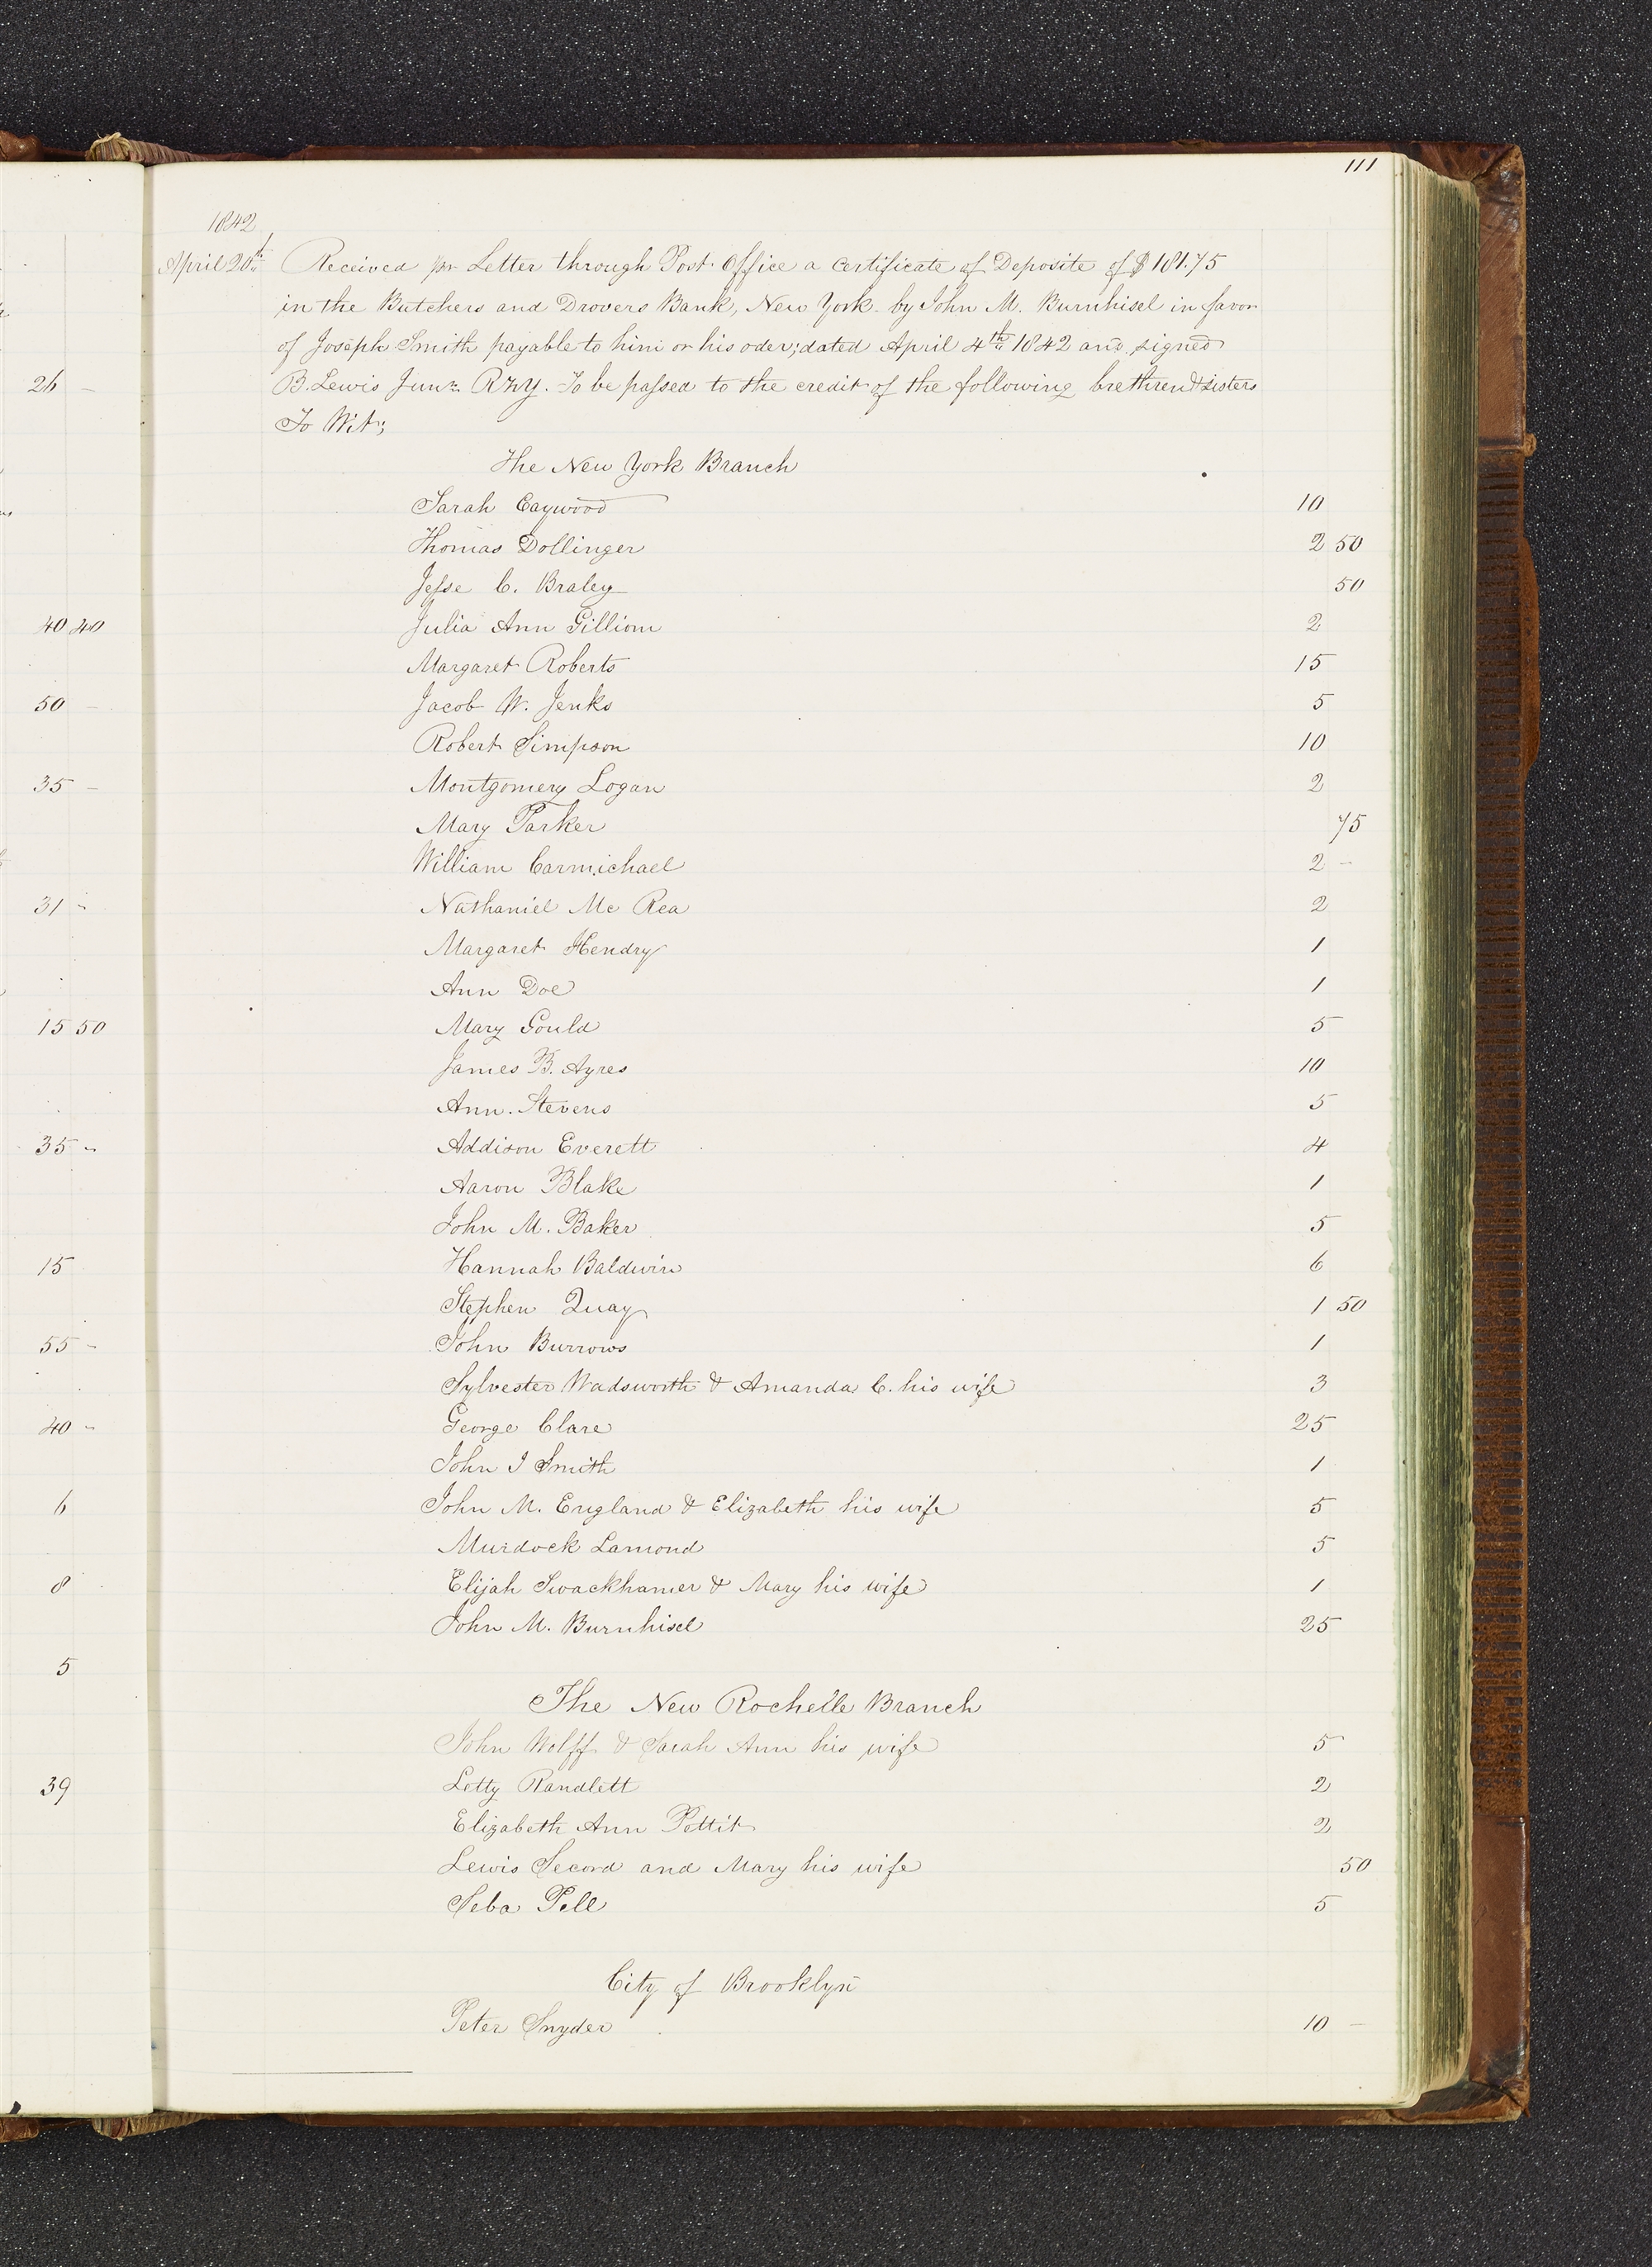 111
1842
April 20th Received pr Letter through Post Office a certificate of Deposite of $181.75
in the Butchers and Drovers Bank, New York. by John M. Burnhisel in favor
of Joseph Smith payable to him or his oder; dated April 4th 1842 and signed
B. Lewis Junr. To be passed to the credit of the following brethren & sisters
To Wit;
The New York Branch
Sarah Caywood 10
Thomas Dollinger 2 50
Jesse C. Braley 50
Julia Ann Gilliom 2
Margaret Roberts 15
Jacob W. Jenks 5
Robert Simpson 10
Montgomery Logan 2
Mary Parker 75
William Carmichael 2 -
Nathaniel Mc Rea 2
Margaret Hendry 1
Ann Doe 1
Mary Gould 5
James B. Ayres 10
Ann. Stevens 5
Addison Everett 4
Aaron Blake 1
John M. Baker 5
Hannah Baldwin 6
Stephen Quay 1 50
John Burrows 1
Sylvester Wadsworth & Amanda C. his wife 3
George Clare 25
John I Smith 1
John M. England & Elizabeth his wife 5
Murdock Lamond 5
Elijah Swackhamer & Mary his wife 1
John M. Burnhisel 25
The New Rochelle Branch
John Wolff & Sarah Ann his wife 5
Letty Randlett 2
Elizabeth Ann Pettit 2
Lewis Secord and Mary his wife 50
Seba Pell 5
City of Brooklyn
Peter Snyder 10 -
26 -
40 40
50 -
35 -
31 -
15 50
35 -
15
55 -
40 -
6
8
5
39